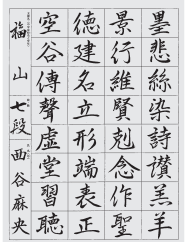 墨悲絲染詩讃羔羊
景行維賢剋念作聖
徳建名立形端表正
空谷傳聲虚堂習聽
福山七段西谷麻央